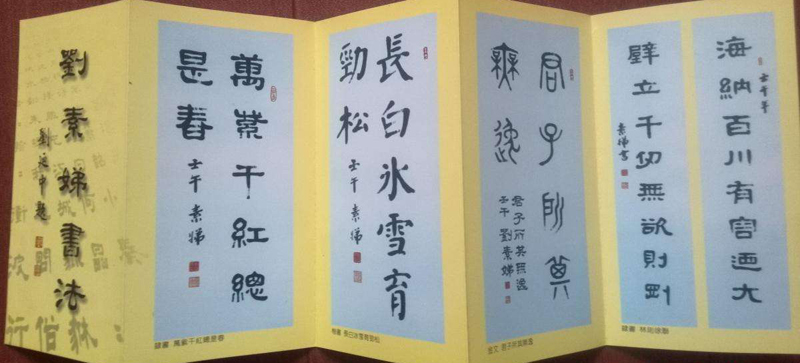 海納百川有容迺大
壬午年
壁立千仞無欲則剛
素娣書
隸書 林則徐聯
君子所其
無逸
君子所其無逸
壬午 劉素娣
金文 君子所其無逸
長白冰雪育
勁松
壬午 素娣
隸書 長白冰雪育勁松
萬紫千紅總
是春
壬午 素娣
隸書 萬紫千紅總是春
劉素娣書法